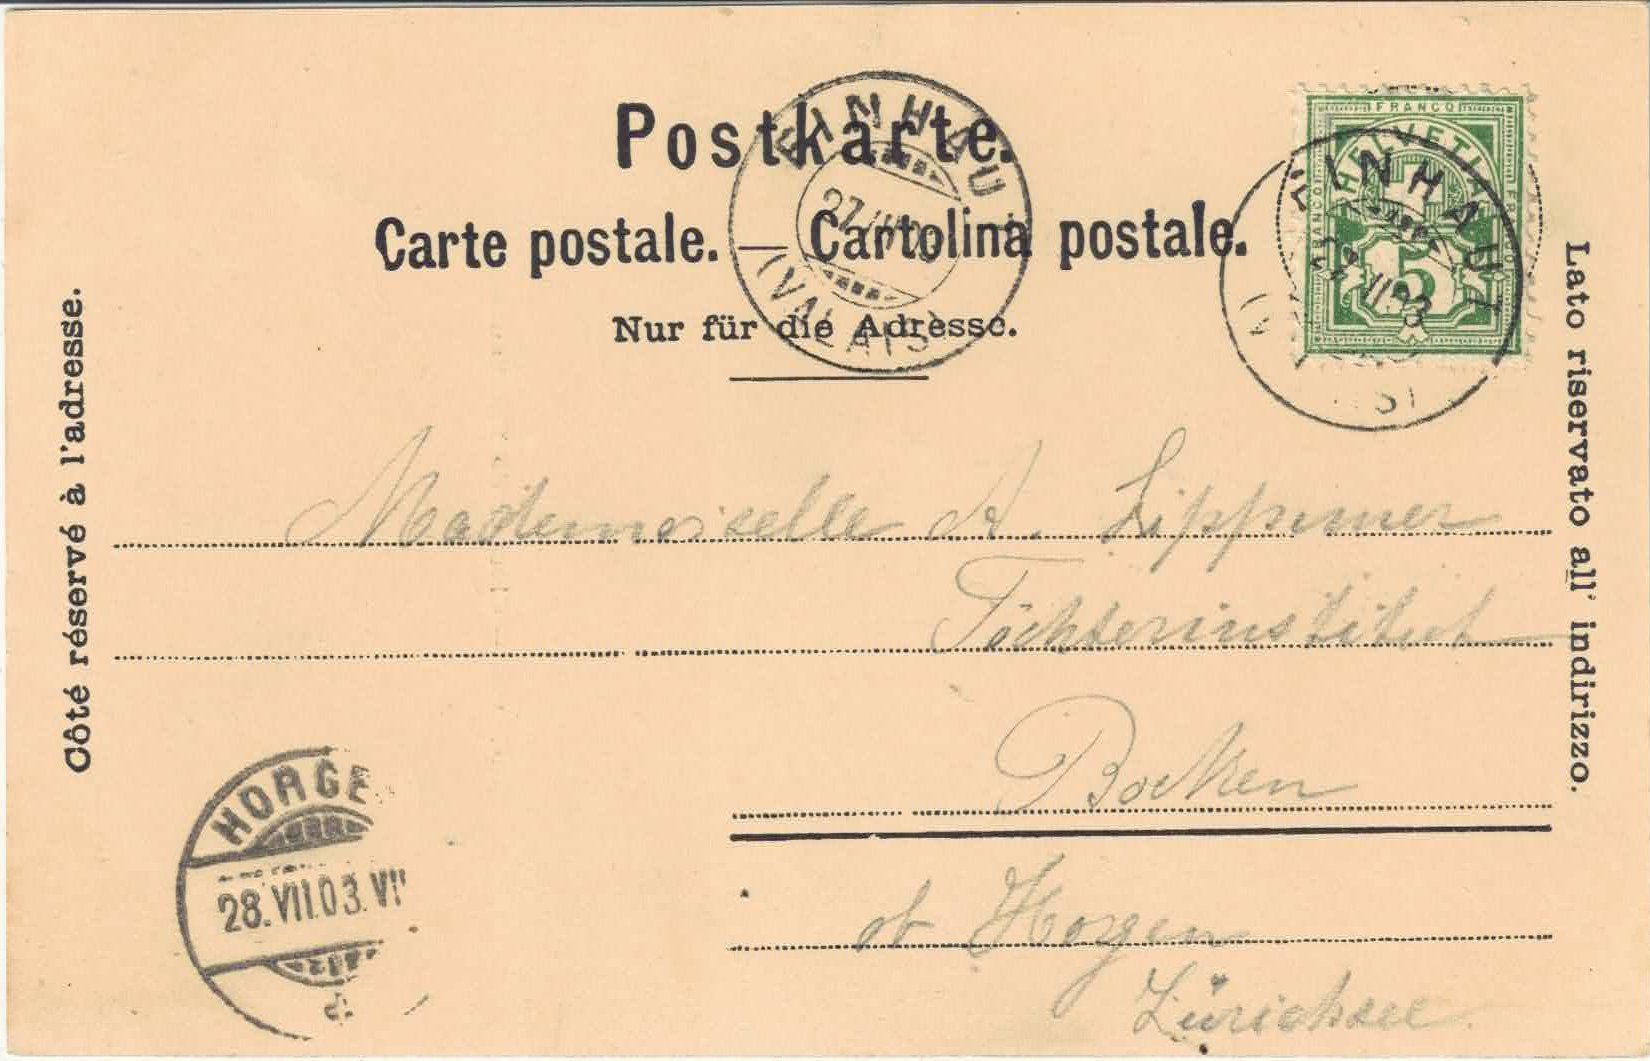 Postkarte.
Carte postale. — Cartolina postale.
Nur für die Adresse.
Côté réservé à l'adresse.
Lato riservato all' indirizzo.
FINHAUT
27.VII.03
(VALAIS)
FRANCO
HELVETIA
FRANCO
5
FINHAUT
VII 03
Mademoiselle A. Lippuner
Töchterinstitut
Bocken
ob Horgen
Zürichsee.
HORGE
28.VII.03.VII